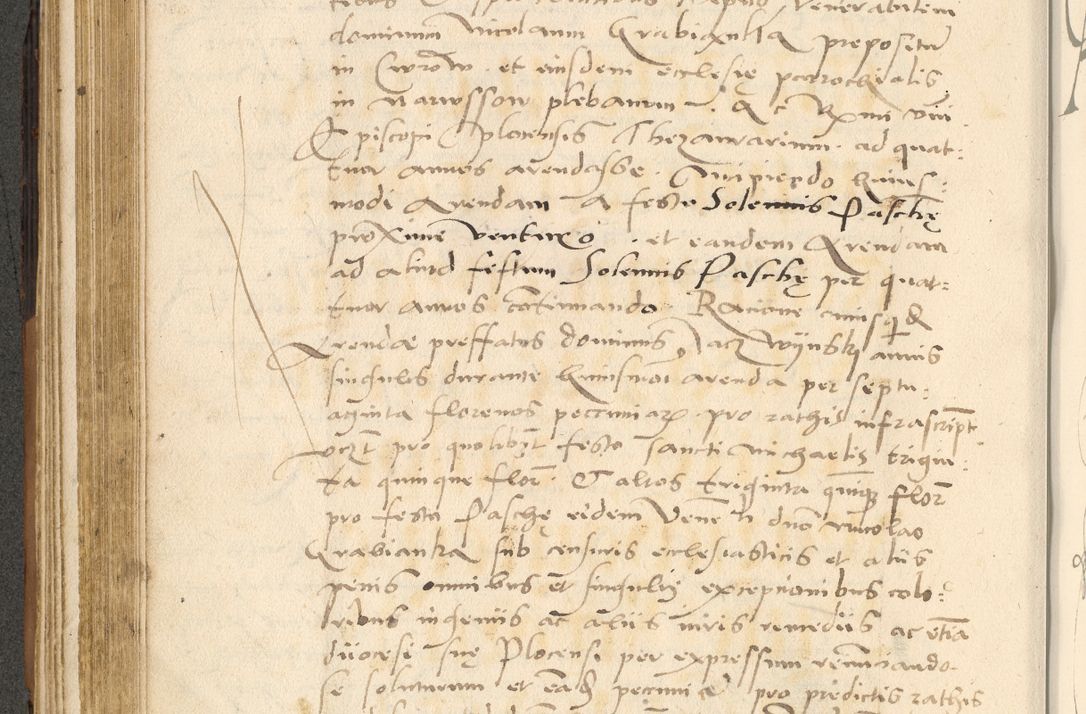 dominum Nicolaum Grabiankka prepositu
in Cwrow. et eiusdem ecclesię parrochialis
in Narwssow plebanum. Ac Rmi dni
Episcopi Plocensis Thezaurarium. ad quat=
tuor annos arendasse. Incipiendo huius=
modi Arendam A festo Solennis Paschę
proxime venturo. et eandem Arendam
ad aliud festum Solennis Paschę per quat=
tuor annos continuando. Racione cuius q
Arendae preffatus dominus annis
singulis durante huiusmodi arenda per septu=
aginta florenos pecuniar. pro rathis infrascript
pro quolibet festo sancti Michaelis trigin=
ta quinque flor. Et altos triginta quinque flor
pro festo Paschę eidem Vene dno Nicolao
Grabianka sub censuris ecclesiasticis et aliis
penis omnibus et singulis exceptionibus colo=
ribus ingeniis ac aliis iuris remediis ac etia
diiocesi suę Plocensi per expressum renunciando.
se soluturum et pecunia pro predictis rathis